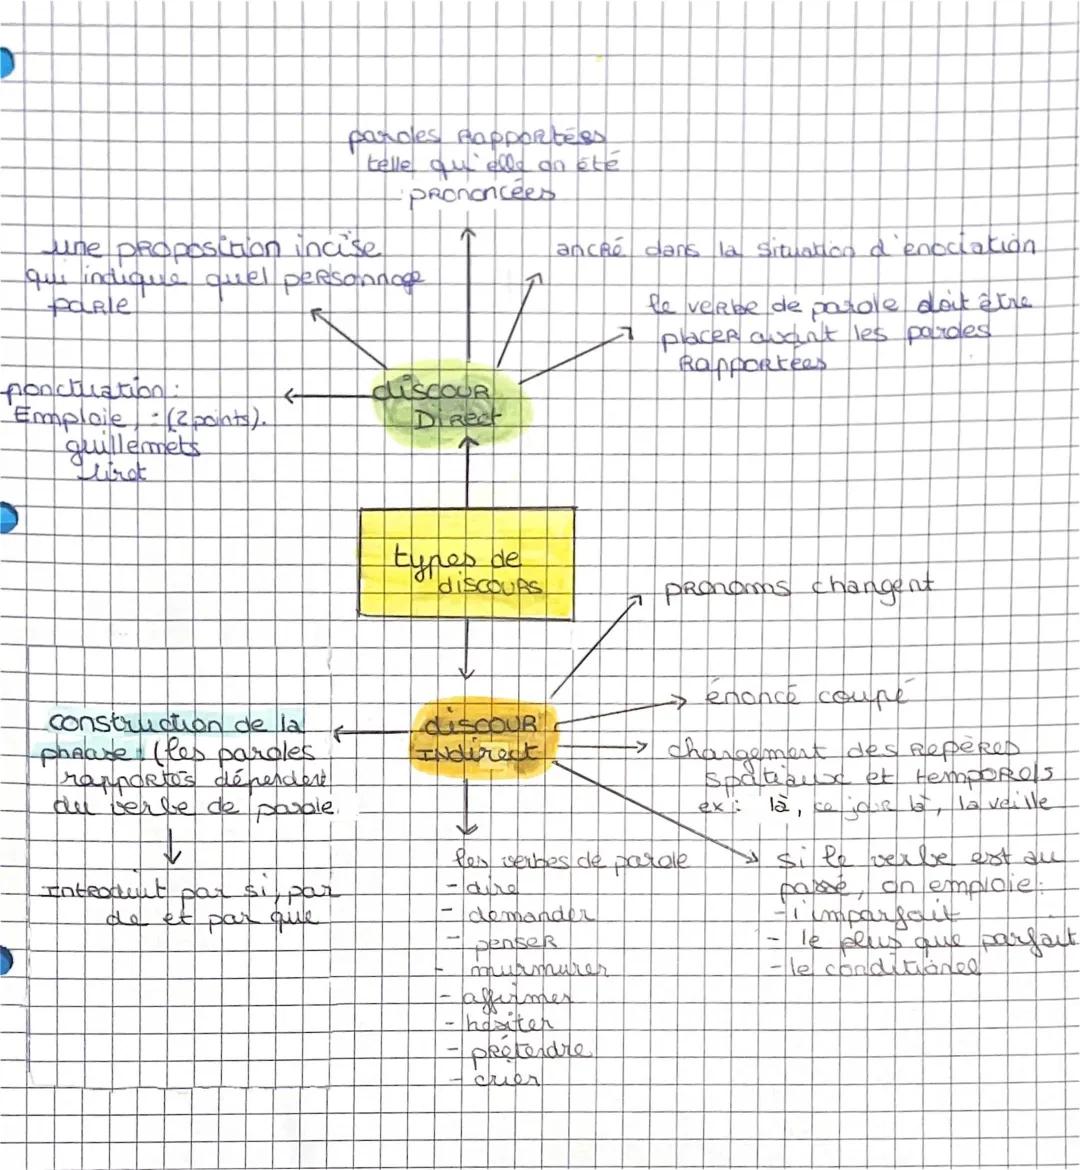 paroles Rapportées
telle qu'elle on été
prononcées
une proposition incise
qui indique quel personnage
parle
ancré dans la situation d'enociation
le verbe de parole doit être
placer avant les paroles
Rapportées
ponctuation :
Emploie : (2 points).
guillemets
tiret
discour
Direct
types de
discours
pronoms changent
énoncé coupé
construction de la
phrase : (les paroles
rapportés dépendent
du verbe de parole.
discour
Indirect
changement des Repères
spatiaux et temporels
ex : là, ce jour là, la veille
Introduit par si, par
de et par que
les verbes de parole
- dire
- demander
- penser
- murmurer
- affirmer
- hésiter
- prétendre
- crier
si le verbe est au
passé, on emploie :
- l'imparfait
- le plus que parfait
- le conditionel